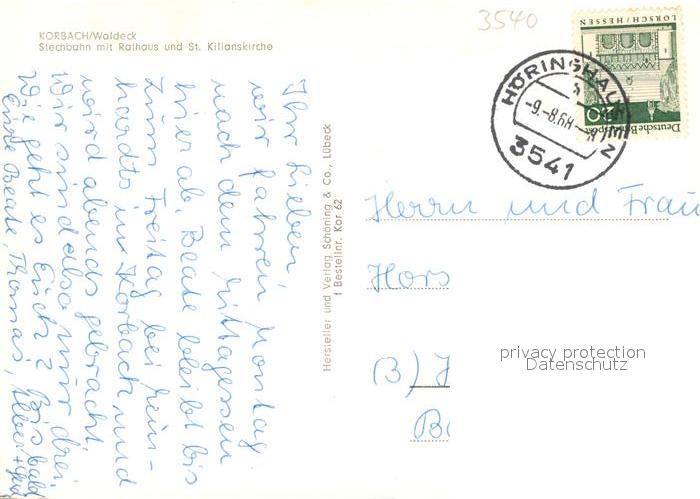 3540
KORBACH/Waldeck
Stechbahn mit Rathaus und St. Kilianskirche
Ihr Lieben
wir fahren Montag
nach dem Mittagessen
hier ab. Beate bleibt bis
zum Freitag bei
hardts in Korbach und
wird abends gebracht.
Wir sind also nur drei.
Wie geht es Euch? Bis bald
Eure Beate, Thomas,
Hersteller und Verlag Schöning & Co., Lübeck
Bestellnr. Kor 62
LORSCH/HESSEN
Deutsche Bundespost
20
HÖRINGHAUSEN
-9.-8.68-
3541
Herrn und Frau
Hors
B) J
privacy protection
Datenschutz